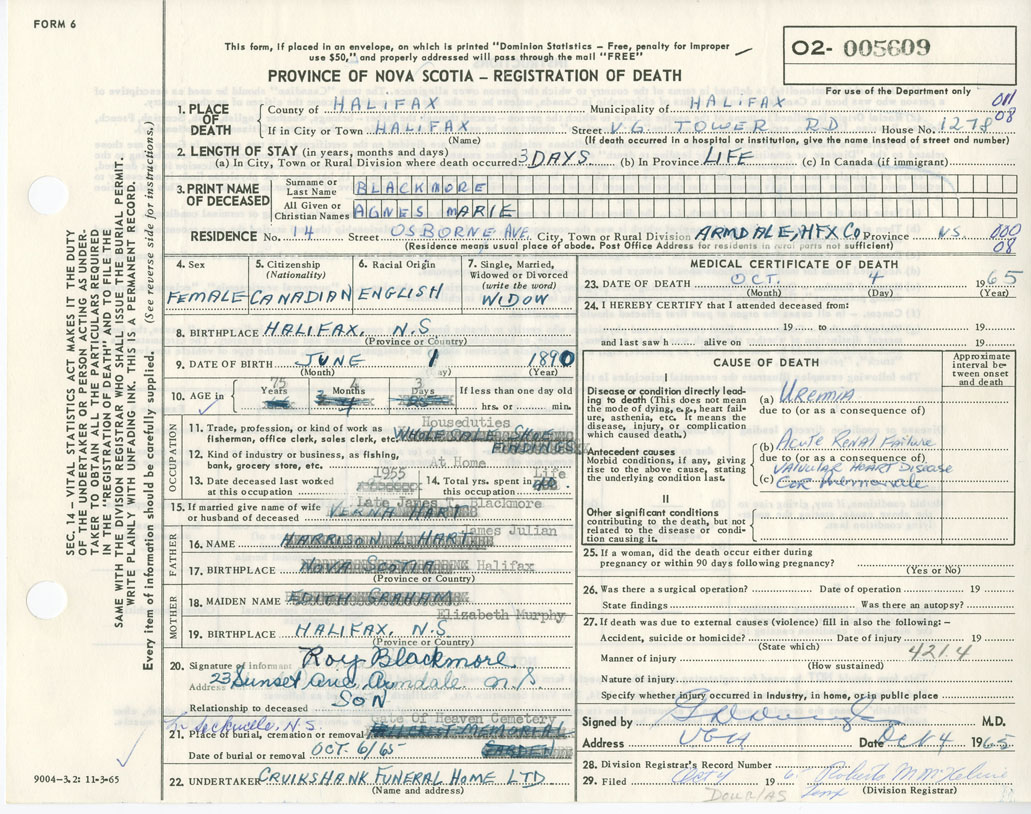 FORM 6
This form, if placed in an envelope, on which is printed "Dominion Statistics – Free, penalty for improper
use $50," and properly addressed will pass through the mail "FREE"
O2- 005609
PROVINCE OF NOVA SCOTIA – REGISTRATION OF DEATH
For use of the Department only
1. PLACE OF DEATH County of HALIFAX Municipality of HALIFAX 08
If in City or Town HALIFAX Street V.G. TOWER RD House No. 1278
(Name) (If death occurred in a hospital or institution, give the name instead of street and number)
2. LENGTH OF STAY (in years, months and days)
(a) In City, Town or Rural Division where death occurred: 3 DAYS (b) In Province LIFE (c) In Canada (if immigrant)
3. PRINT NAME OF DECEASED Surname or Last Name BLACKMORE
All Given or Christian Names AGNES MARIE
RESIDENCE No. 14 Street OSBORNE AVE. City, Town or Rural Division ARMDALE, HFX Co Province N.S. 000
(Residence means usual place of abode. Post Office Address for residents in rural parts not sufficient) 08
4. Sex 5. Citizenship (Nationality) 6. Racial Origin 7. Single, Married, Widowed or Divorced (write the word)
FEMALE CANADIAN ENGLISH WIDOW
8. BIRTHPLACE HALIFAX, N.S
(Province or Country)
9. DATE OF BIRTH JUNE 1 1890
(Month) (Day) (Year)
10. AGE in 75 Years 4 Months 3 Days If less than one day old
hrs. or min.
OCCUPATION
11. Trade, profession, or kind of work as fisherman, office clerk, sales clerk, etc. Houseduties
WHOLESALE SHOE FINDINGS
12. Kind of industry or business, as fishing, bank, grocery store, etc. At Home
13. Date deceased last worked at this occupation 1955 14. Total yrs. spent in this occupation Life
15. If married give name of wife or husband of deceased Late James T. Blackmore
VERNA HART
FATHER
16. NAME HARRISON L HART James Julian
17. BIRTHPLACE NOVA SCOTIA Halifax
(Province or Country)
MOTHER
18. MAIDEN NAME EDITH GRAHAM
Elizabeth Murphy
19. BIRTHPLACE HALIFAX, N.S.
(Province or Country)
20. Signature of informant Roy Blackmore
Address 23 Sunset Ave, Armdale N.S
Relationship to deceased SON
Sackville, N.S.
21. Place of burial, cremation or removal Gate Of Heaven Cemetery
HILLCREST MEMORIAL GARDEN
Date of burial or removal OCT. 6/65
22. UNDERTAKER CRUIKSHANK FUNERAL HOME LTD
(Name and address)
MEDICAL CERTIFICATE OF DEATH
23. DATE OF DEATH OCT. 4 1965
(Month) (Day) (Year)
24. I HEREBY CERTIFY that I attended deceased from:
19 to 19
and last saw h alive on 19
CAUSE OF DEATH
Approximate interval between onset and death
I
Disease or condition directly leading to death (This does not mean the mode of dying, e.g., heart failure, asthenia, etc. It means the disease, injury, or complication which caused death.)
(a) Uremia
due to (or as a consequence of)
Antecedent causes
Morbid conditions, if any, giving rise to the above cause, stating the underlying condition last.
(b) Acute Renal Failure
due to (or as a consequence of)
Valvular Heart Disease
(c) Cor Pulmonale
II
Other significant conditions contributing to the death, but not related to the disease or condition causing it.
25. If a woman, did the death occur either during
pregnancy or within 90 days following pregnancy?
(Yes or No)
26. Was there a surgical operation? Date of operation 19
State findings Was there an autopsy?
27. If death was due to external causes (violence) fill in also the following: –
Accident, suicide or homicide? Date of injury 19
(State which) 421.4
Manner of injury
(How sustained)
Nature of injury
Specify whether injury occurred in industry, in home, or in public place
Signed by M.D.
Address VGH Date Oct 4 1965
28. Division Registrar's Record Number
29. Filed Oct 4 196
(Division Registrar)
DOUGLAS
9004-3.2: 11-3-65
SEC. 14 – VITAL STATISTICS ACT MAKES IT THE DUTY
OF THE UNDERTAKER OR PERSON ACTING AS UNDER-
TAKER TO OBTAIN ALL THE PARTICULARS REQUIRED
IN THE "REGISTRATION OF DEATH" AND TO FILE THE
SAME WITH THE DIVISION REGISTRAR WHO SHALL ISSUE THE BURIAL PERMIT.
WRITE PLAINLY WITH UNFADING INK. THIS IS A PERMANENT RECORD.
Every item of information should be carefully supplied. (See reverse side for instructions.)